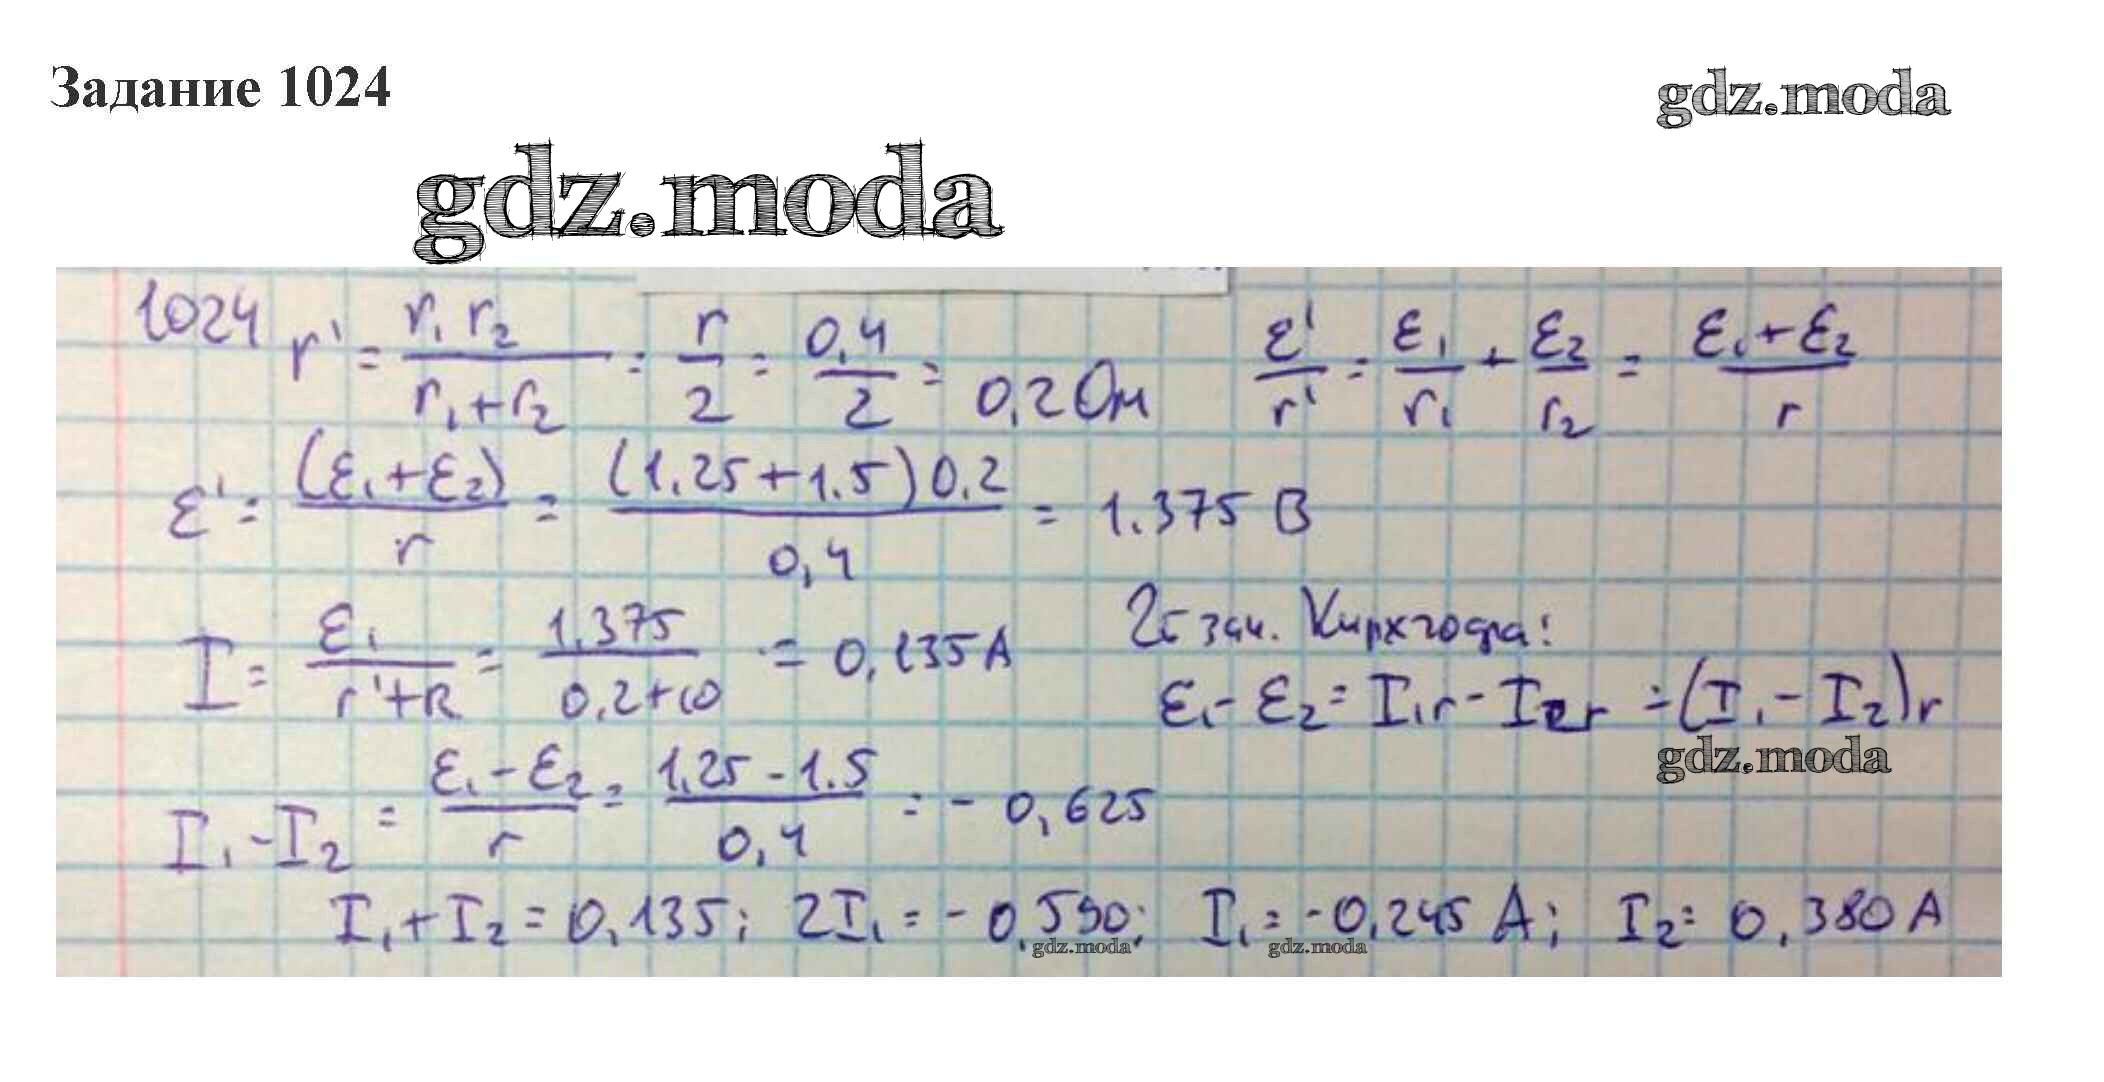 Задание 1024
gdz.moda
gdz.moda
1024 r' = r₁ r₂ / r₁+r₂ = r/2 = 0,4/2 = 0,2 Ом ε'/r' = ε₁/r₁ + ε₂/r₂ = ε₁+ε₂/r
ε' = (ε₁+ε₂)/r = (1.25+1.5)0.2/0,4 = 1.375 В
I = ε₁/r'+R = 1,375/0,2+10 = 0,135А 2й зак. Кирхгофа:
ε₁ - ε₂ = I₁r - I₂r = (I₁ - I₂)r
gdz.moda
I₁ - I₂ = ε₁ - ε₂/r = 1,25 - 1.5/0,4 = - 0,625
I₁ + I₂ = 0,135; 2I₁ = - 0,590; I₁ = -0,245 А; I₂ = 0,380 А
gdz.moda gdz.moda